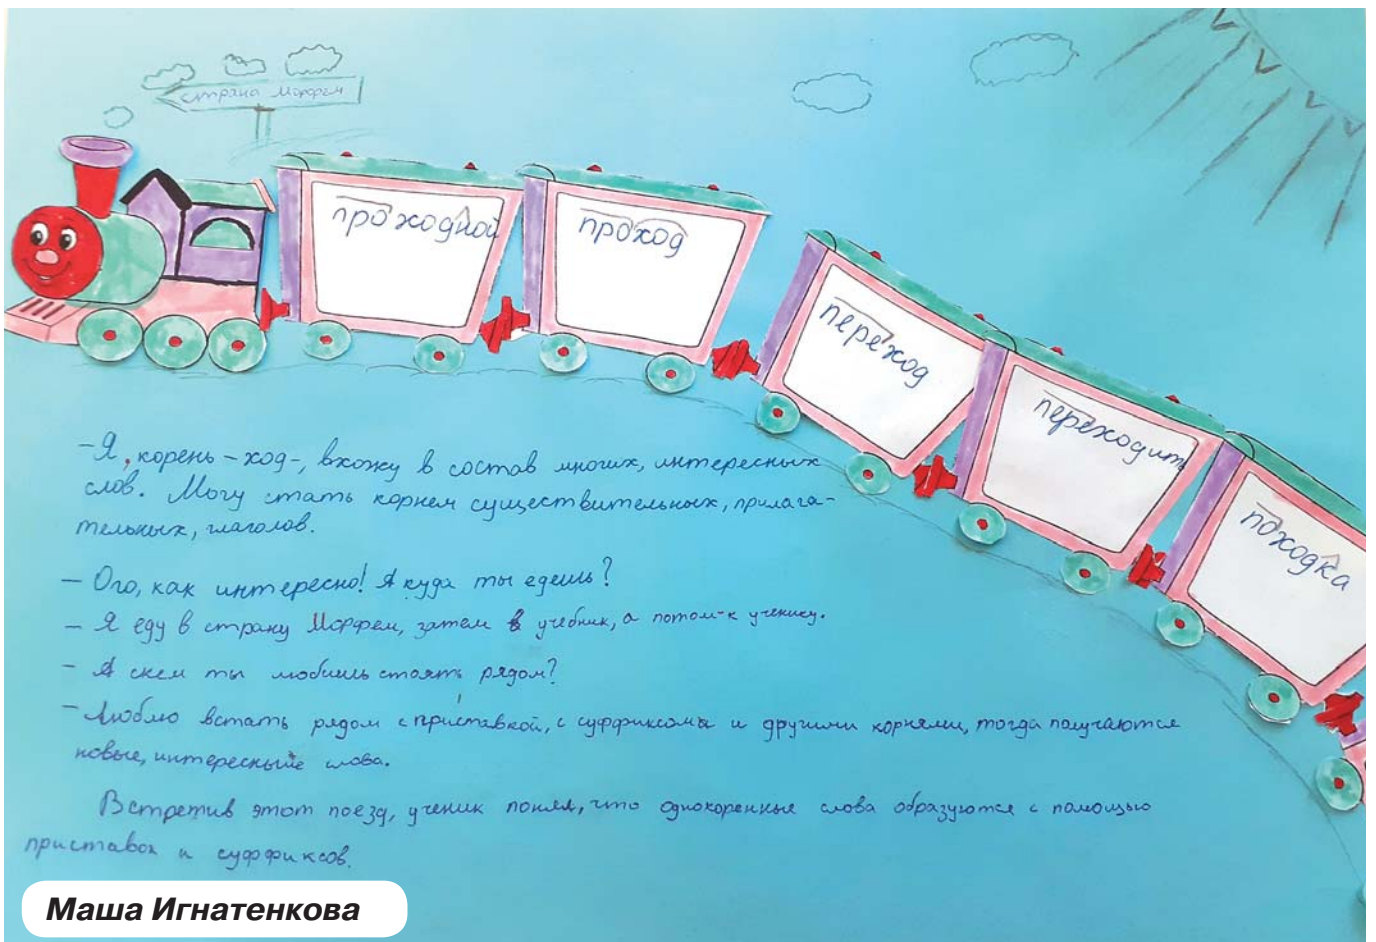 страна Морфем
проходной
проход
переход
переходить
походка
– Я, корень – ход-, вхожу в состав многих, интересных
слов. Могу стать корнем существительных, прилага-
тельных, глаголов.
– Ого, как интересно! А куда ты едешь?
– Я еду в страну Морфем, затем в учебник, а потом-к ученику.
– А скем ты любишь стоять рядом?
– Люблю встать рядом с приставкой, с суффиксома и другими корнями, тогда получаются
новые, интересные слова.
Встретив этот поезд, ученик понял, что однокоренные слова образуются с помощью
приставок и суффиксов.
Маша Игнатенкова